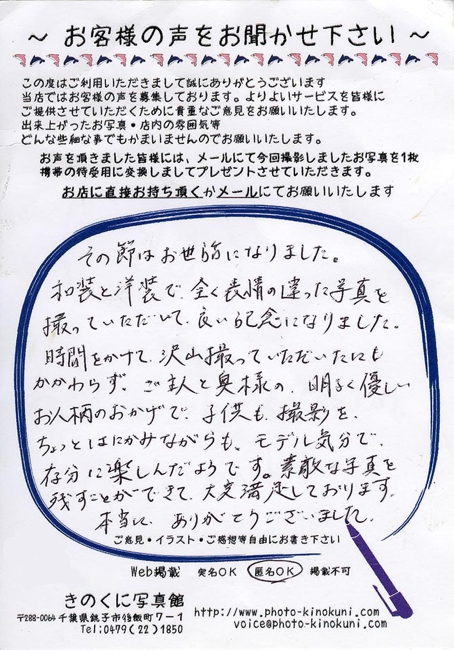 ～ お客様の声をお聞かせ下さい ～
この度はご利用いただきまして誠にありがとうございます
当店ではお客様の声を募集しております。よりよいサービスを皆様に
ご提供させていただくために貴重なご意見をお願いいたします。
出来上がったお写真・店内の雰囲気等
どんな些細な事でもかまいませんのでお願いいたします。
お声を頂きました皆様には、メールにて今回撮影しましたお写真を1枚
携帯の待受用に変換しましてプレゼントさせていただきます。
お店に直接お持ち頂くかメールにてお願いいたします
その節はお世話になりました。
和装と洋装で、全く表情の違った写真を
撮っていただいて、良い記念になりました。
時間をかけて、沢山撮っていただいたにも
かかわらず、ご主人と奥様の、明るく優しい
お人柄のおかげで、子供も、撮影を、
ちょっとはにかみながらも、モデル気分で、
存分に楽しんだようです。素敵な写真を
残すことができて、大変満足しております。
本当に、ありがとうございました。
ご意見・イラスト・ご感想等自由にお書き下さい
Web掲載 実名OK 匿名OK 掲載不可
きのくに写真館
〒288-0064 千葉県銚子市後飯町7－1
Tel:0479(22)1850
http://www.photo-kinokuni.com/
voice@photo-kinokuni.com/